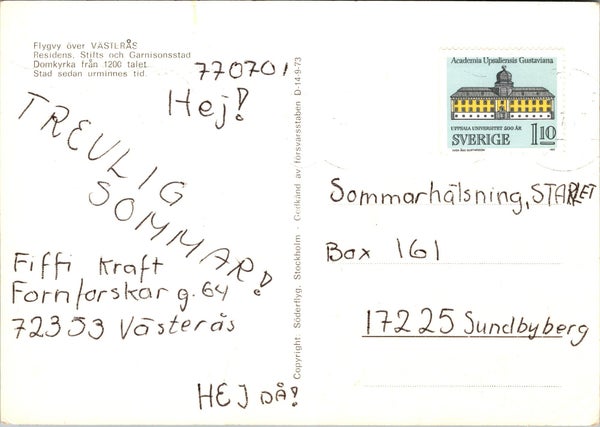 Flygvy över VÄSTERÅS
Residens, Stifts och Garnisonsstad
Domkyrka från 1200 talet.
Stad sedan urminnes tid.
770701
Hej!
TREVLIG
SOMMAR!
Fiffi Kraft
Fornforskarg. 64
72353 Västerås
HEJ DÅ!
Copyright: Söderflyg, Stockholm - Godkänd av försvarsstaben D-14-9-73
Academia Upsaliensis Gustaviana
UPPSALA UNIVERSITET 500 ÅR
SVERIGE 1.10
Sommarhälsning, STARLET
Box 161
17225 Sundbyberg